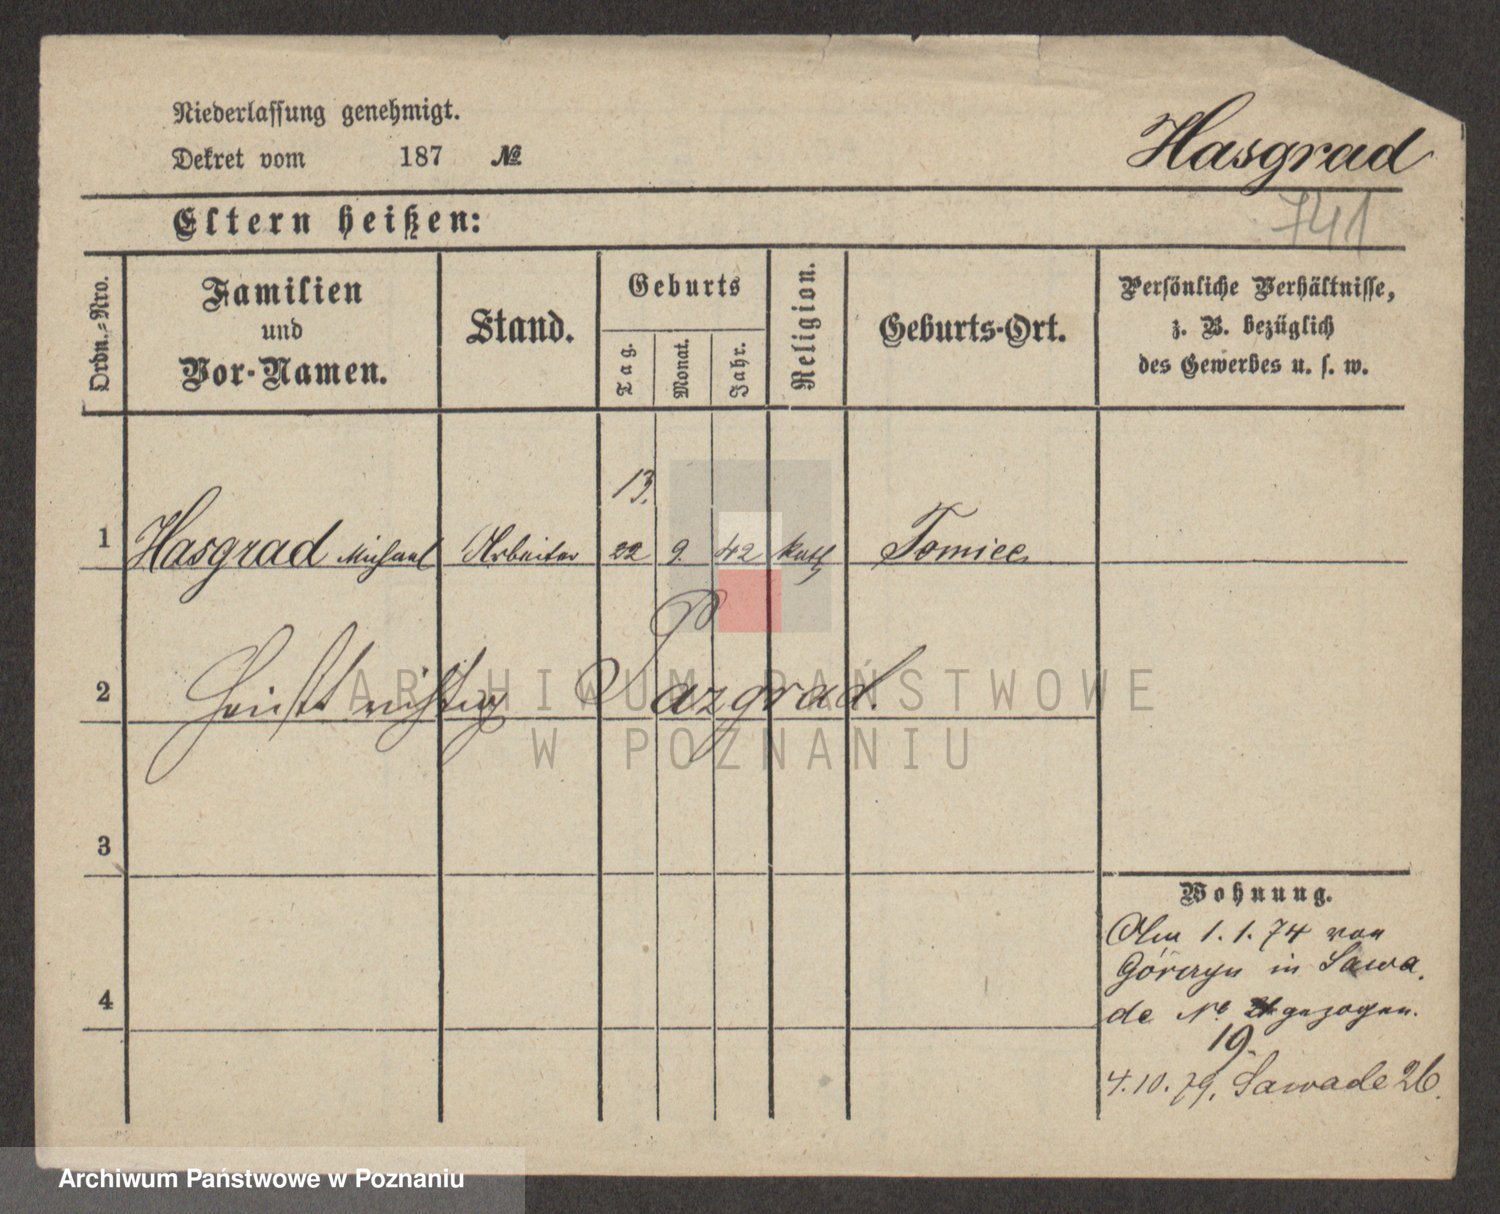 Niederlassung genehmigt.
Dekret vom 187 №
Hasgrad
741
Eltern heißen:
Ordn.-Nro.
Familien und Vor-Namen.
Stand.
Geburts
Tag.
Monat.
Jahr.
Religion.
Geburts-Ort.
Persönliche Verhältnisse,
z. B. bezüglich
des Gewerbes u. s. w.
13.
1 Hasgrad Michael Arbeiter 22 9. 42 kath Tomice
2 Heißt richtig Pazgrad.
ARCHIWUM PAŃSTWOWE
W POZNANIU
3
Wohnung.
Am 1.1.74 von
Górczyn in Sawa
4
de No gezogen.
19.
4.10.79. Sawade 26.
Archiwum Państwowe w Poznaniu